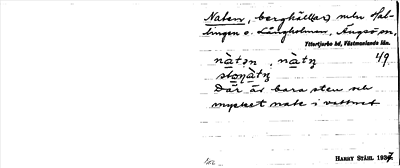 Naten, berghäll(ar) mln Hal-
lingen o. Långholmen, Ängsö sn,
Yttertjurbo hd, Västmanlands län.
nàtən, nàtn̥ 49.
Där är bara sten och
mycket nate i vattnet
HARRY STÅHL 1937